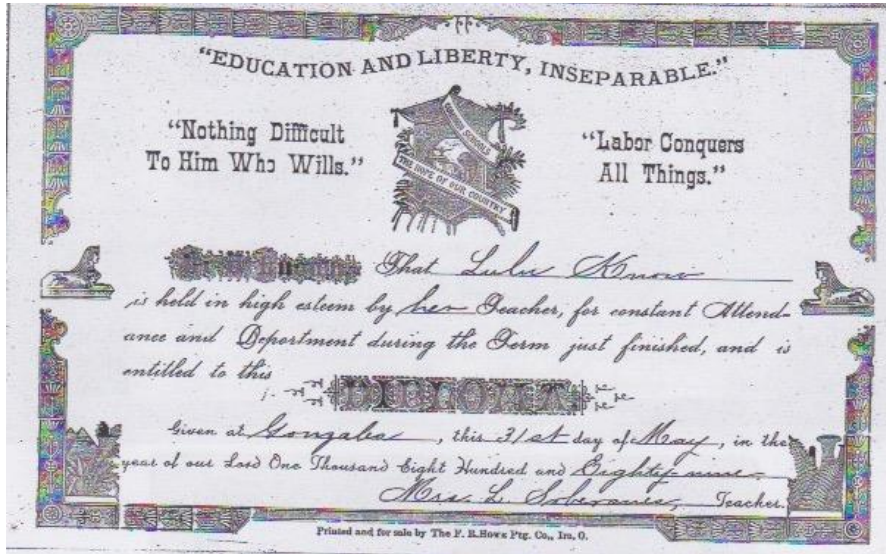 “EDUCATION AND LIBERTY, INSEPARABLE.”
“Nothing Difficult
To Him Who Wills.”
PUBLIC SCHOOLS
THE HOPE OF OUR COUNTRY
“Labor Conquers
All Things.”
Be it Known That Lulu Know
is held in high esteem by her Teacher, for constant Attend-
ance and Deportment during the Term just finished, and is
entitled to this
DIPLOMA
Given at Gonzales, this 31st day of May, in the
year of our Lord One Thousand Eight Hundred and Eighty-nine
Mrs. L. Soberanes, Teacher.
Printed and for sale by The F. R. Howe Ptg. Co., Ira, O.